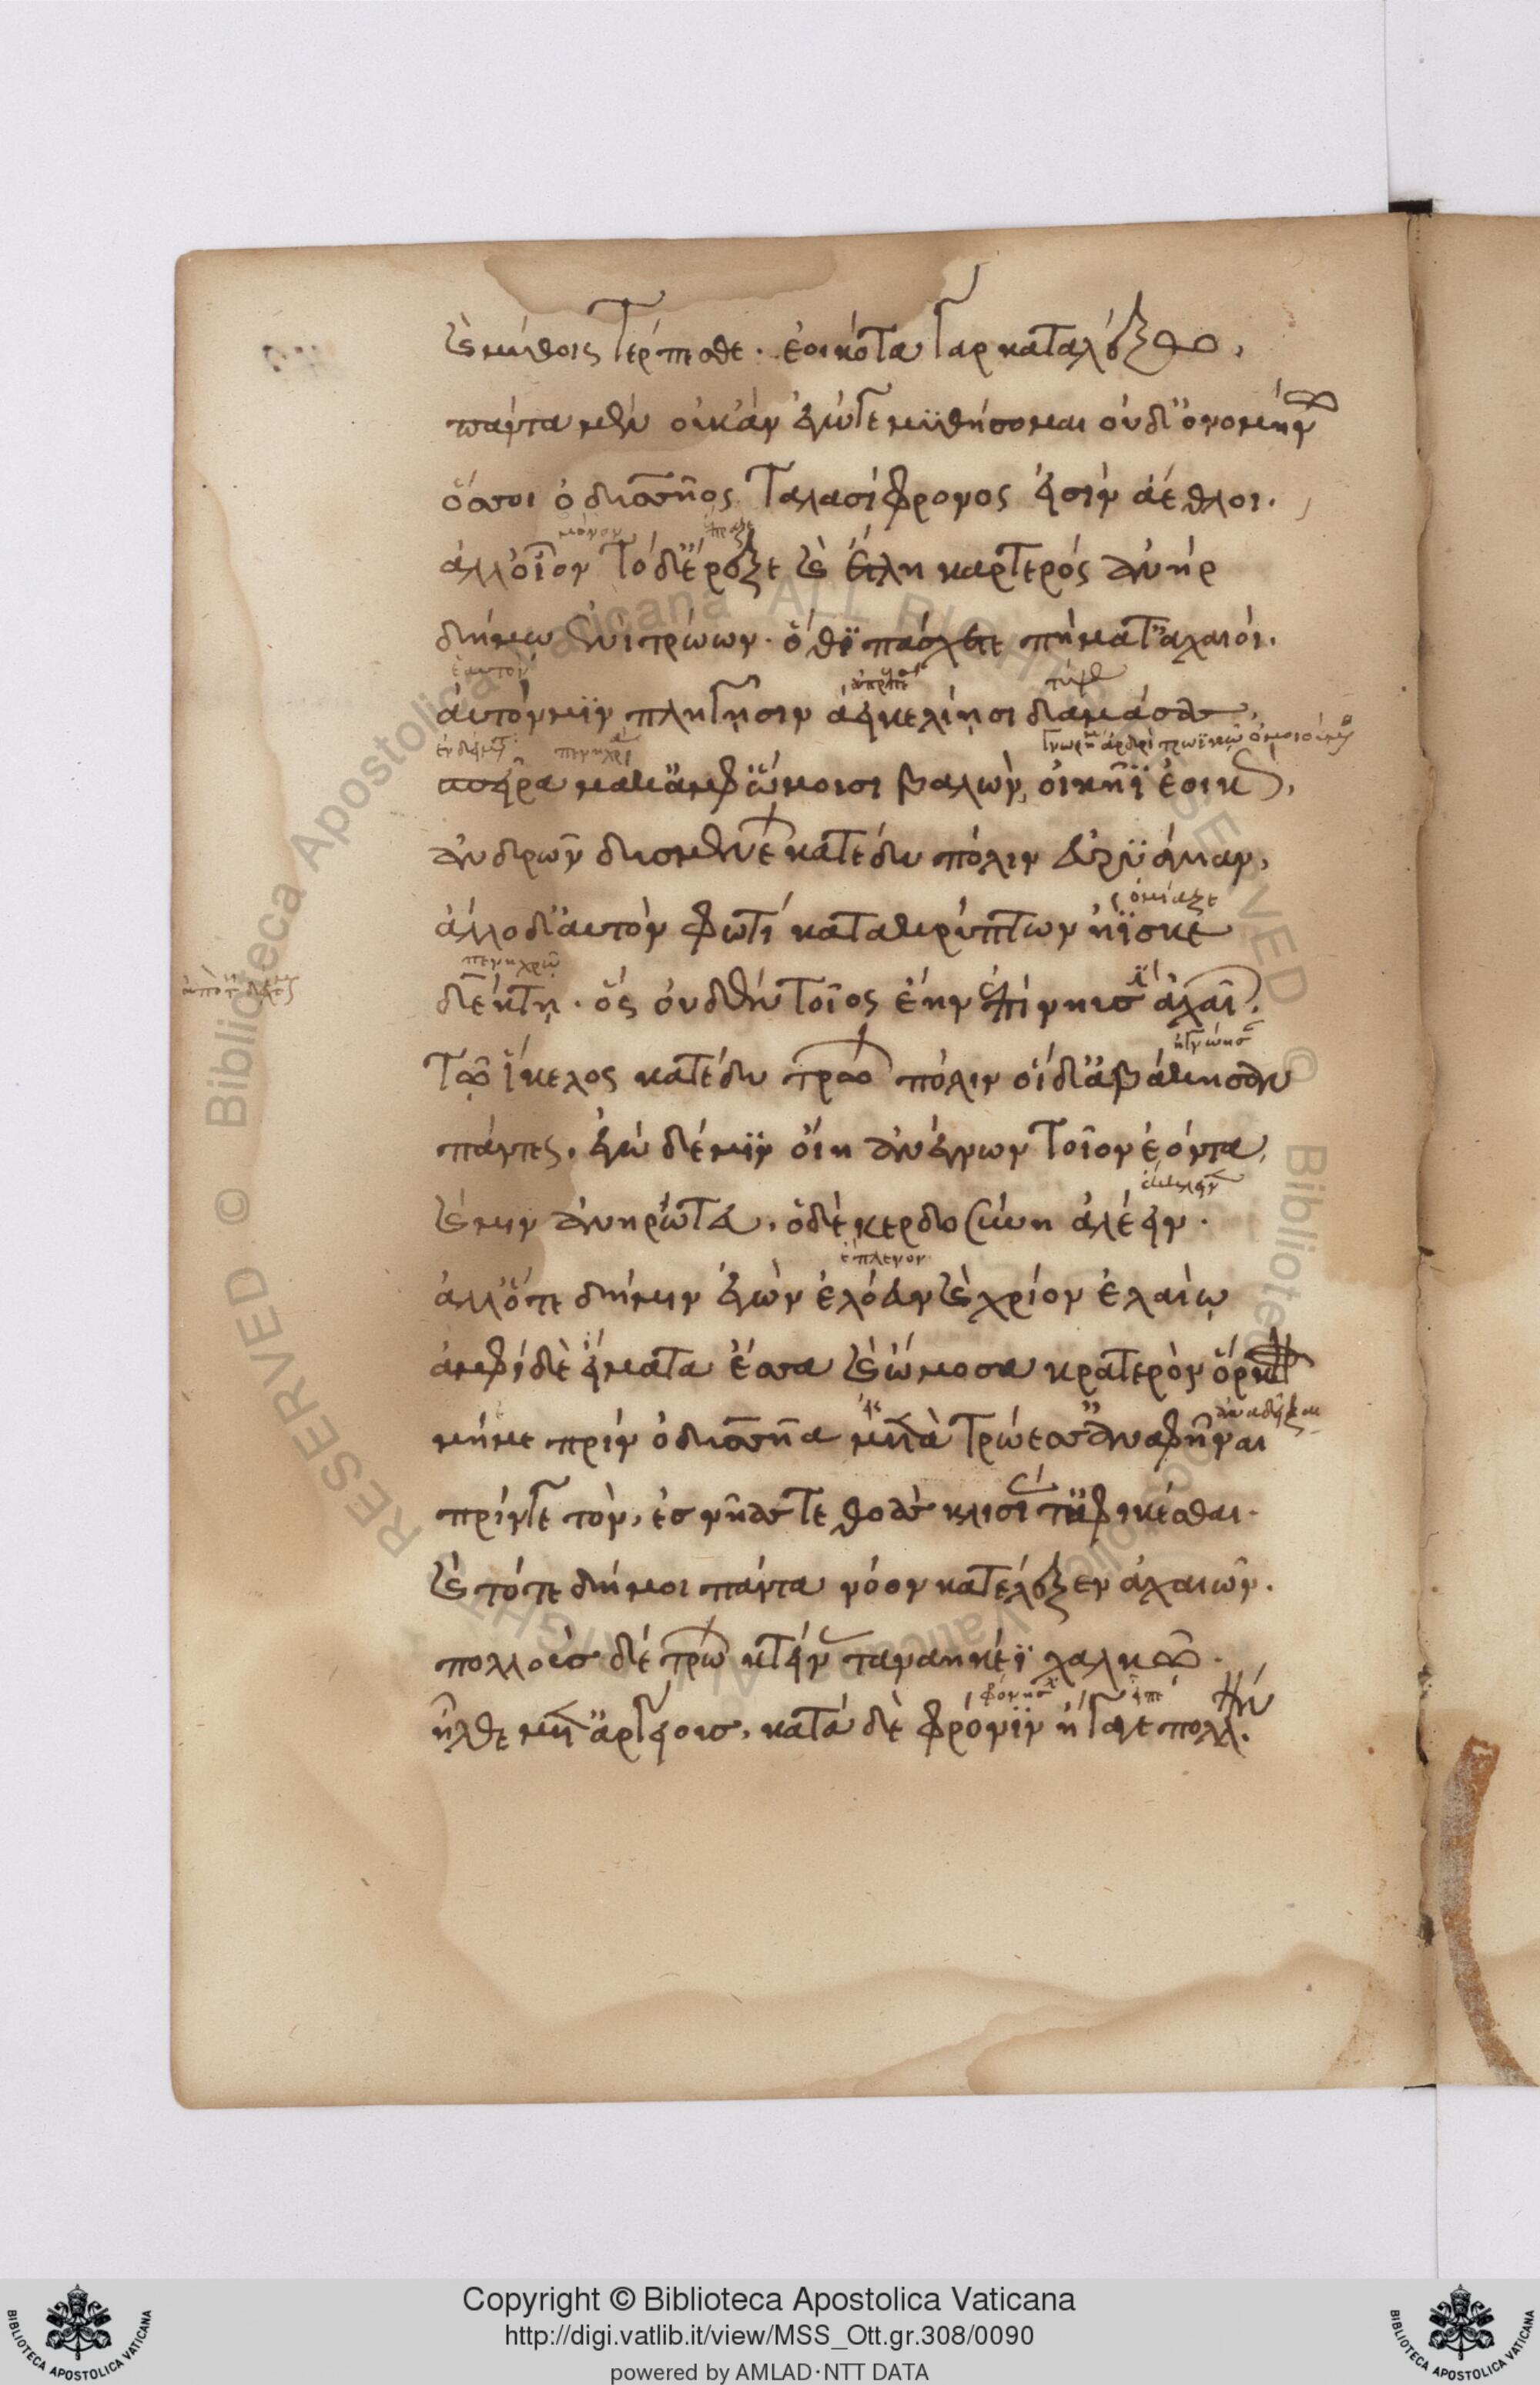 καὶ μύθοις τέρπεσθε· ἐοικότα γὰρ καταλέξω,
πάντα μὲν οὐκ ἂν ἐγώ γε μυθήσομαι οὐδ' ὀνομήνω
ὅσσοι ὀδυσσῆος ταλασίφρονος εἰσὶν ἄεθλοι.
ἀλλ' οἷον τόδ' ἔρεξε καὶ ἔτλη καρτερὸς ἀνὴρ
δήμῳ ἐνὶ τρώων· ὅθι πάσχετε πήματ' ἀχαιοί.
ἑαυτόν
αὐτόν μιν πληγῇσιν ἀεικελίῃσι δαμάσας,
σπεῖρα κάκ' ἀμφ' ὤμοισι βαλὼν, οἰκῆϊ ἐοικώς,
ἀνδρῶν δυσμενέων κατέδυ πόλιν εὐρυάγυιαν,
ἄλλο δ' αὐτὸν φωτὶ κατακρύπτων ἤϊσκε
πενιχρῷ
δέκτῃ· ὃς οὐδὲν τοῖος ἔην ἐπὶ νηυσὶν ἀχαιῶν.
τῷ ἴκελος κατέδυ τρώων πόλιν οἱ δ' ἀβάκησαν
πάντες, ἐγὼ δέ μιν οἴη ἀνέγνων τοῖον ἐόντα,
καί μιν ἀνηρώτων, ὁ δὲ κερδοσύνῃ ἀλέεινεν.
ἔπλενον
ἀλλ' ὅτε δή μιν ἐγὼν ἐλόευν καὶ χρίον ἐλαίῳ
ἀμφὶ δὲ εἵματα ἕσσα καὶ ὤμοσα κρατερὸν ὅρκον
μή με πρὶν ὀδυσσῆα μετὰ τρώεσσ' ἀναφῆναι
πρίν γε τὸν, ἐς νῆάς τε θοὰς κλισίας τ' ἀφικέσθαι.
καὶ τότε δή μοι πάντα νόον κατέλεξεν ἀχαιῶν.
πολλοὺς δὲ τρώων κτείνας ταναήκεϊ χαλκῷ.
ἦλθε μετ' ἀργείους, κατὰ δὲ φρόνιν ἤγαγε πολλήν.